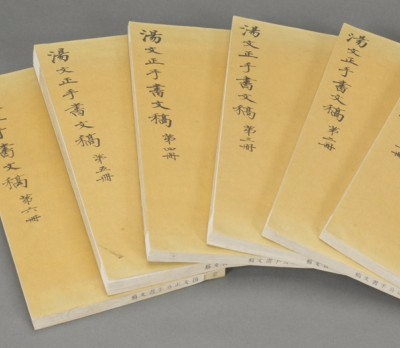 湯文正手書文稿 第二冊
湯文正手書文稿 第三冊
湯文正手書文稿 第四冊
湯文正手書文稿 第五冊
正手書文稿 第六冊